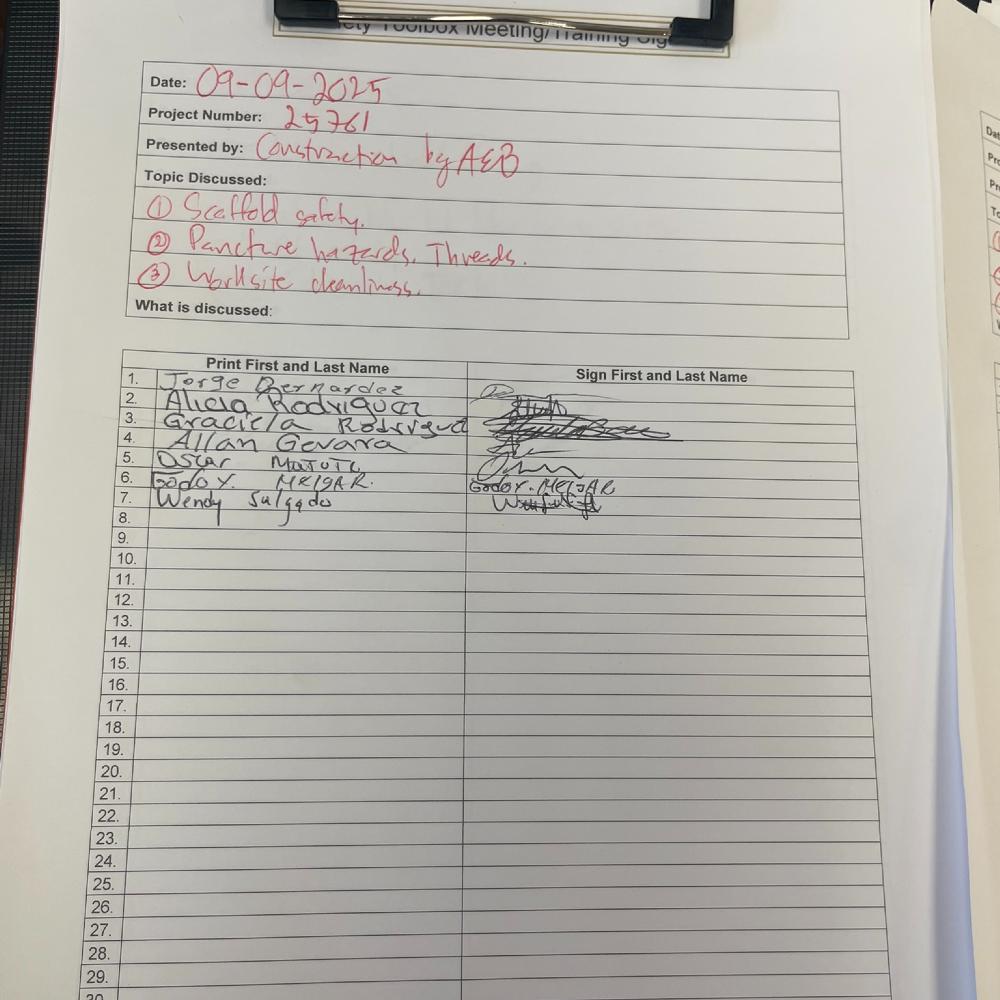 Safety Toolbox Meeting/Training Sig
Date: 09-09-2025
Project Number: 25761
Presented by: Construction by A&B
Topic Discussed:
① Scaffold safety.
② Puncture hazards. Threads.
③ Worksite cleanliness.
What is discussed:
Print First and Last Name Sign First and Last Name
1. Jorge Bernardez
2. Alicia Rodriguez
3. Graciela Rodriguez
4. Allan Gevara
5. Oscar Matute
6. Godoy. MElgAR. Godoy. MElgAR
7. Wendy Salgado
8.
9.
10.
11.
12.
13.
14.
15.
16.
17.
18.
19.
20.
21.
22.
23.
24.
25.
26.
27.
28.
29.
30.
Dat
Pro
Pr
To